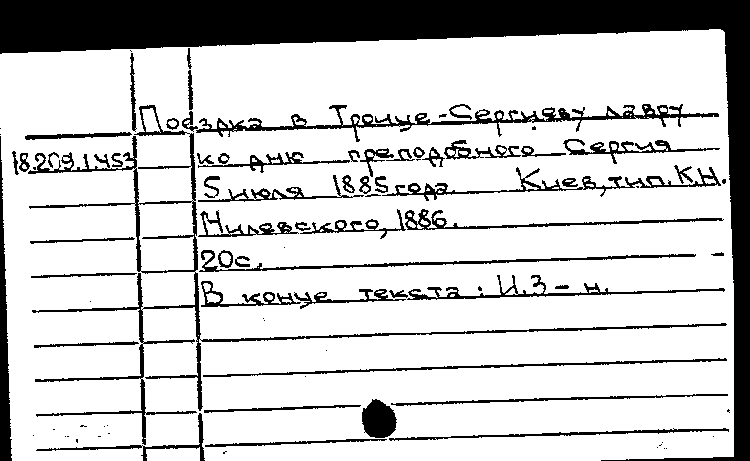 Поездка в Троице-Сергиеву лавру
18.209.1.453 ко дню преподобного Сергия
5 июля 1885 года. Киев, тип. К.Н.
Милевского, 1886.
20с.
В конце текста: И.З-н.